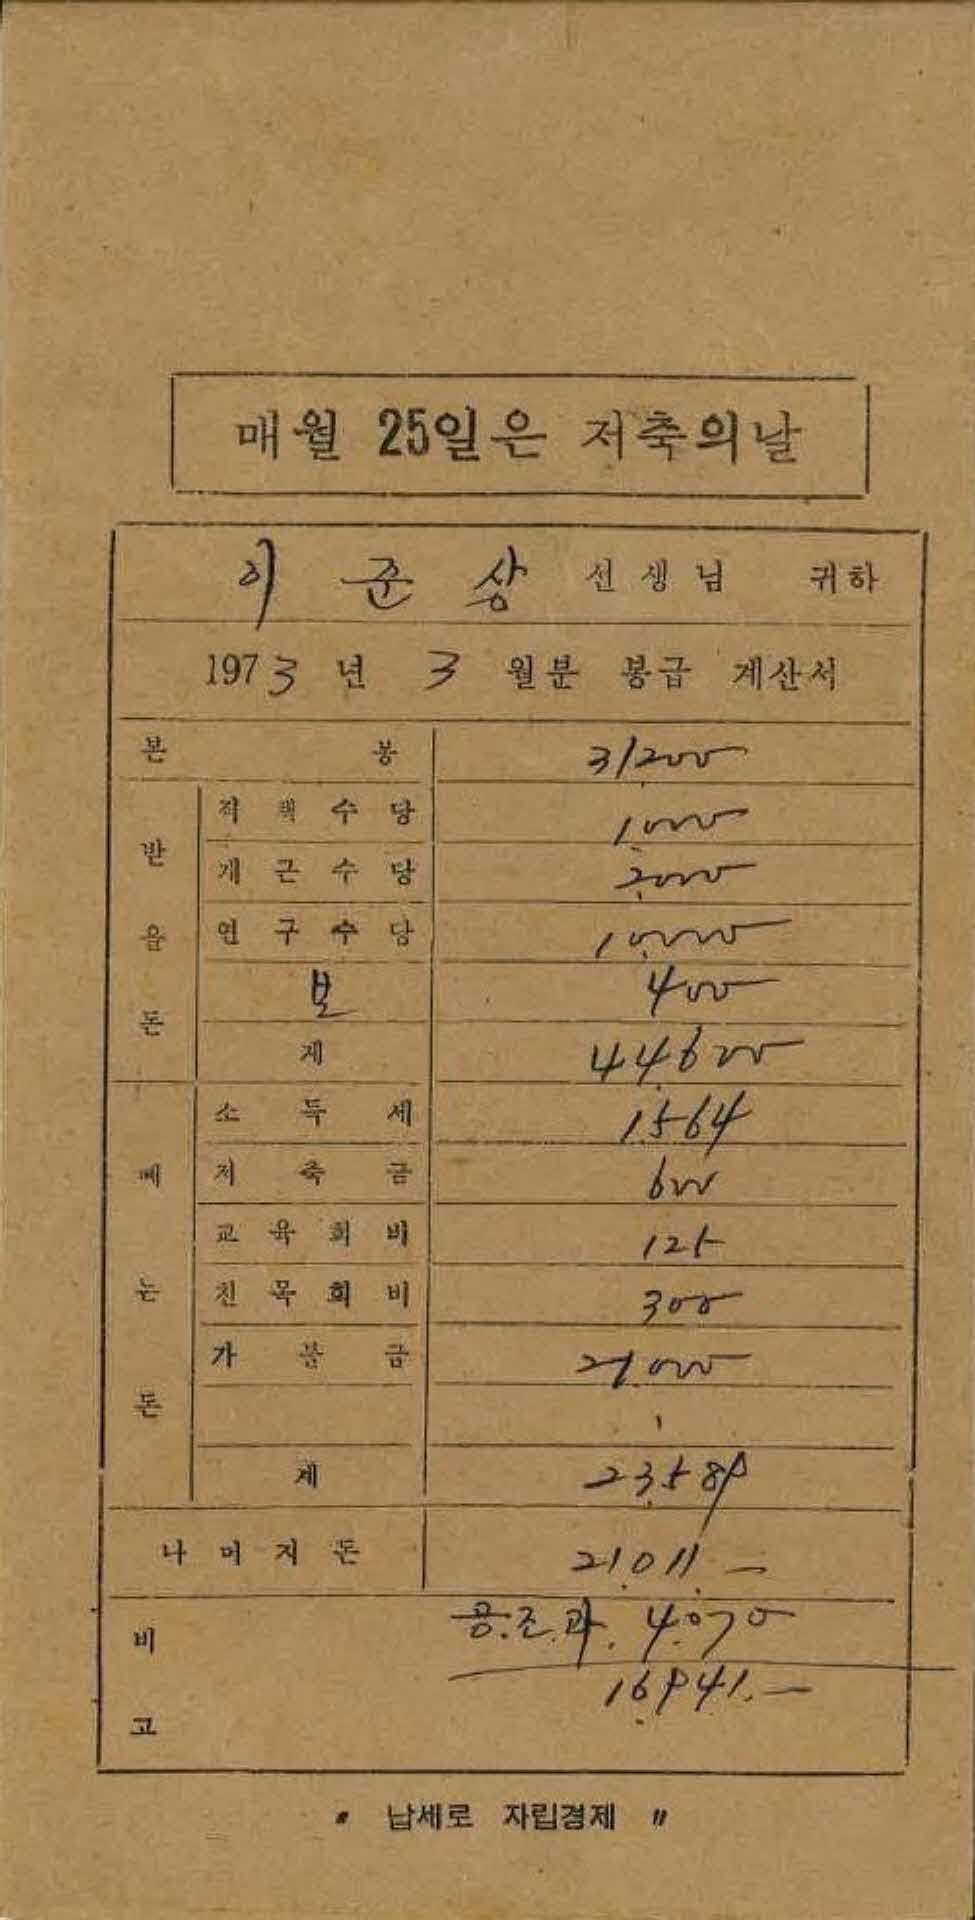 매월 25일은 저축의날
이 준 상 선생님 귀하
1973 년 3 월분 봉급 계산서
본 봉 31200
받을돈
직책수당 1.000
개근수당 2.000
연구수당 10.000
보 400
계 44.600
떼는돈
소득세 1.564
저축금 600
교육회비 125
친목회비 300
가불금 21.000
계 23.589
나머지돈 21.011.—
비고
공.조.과. 4.070
16.941.—
〃 납세로 자립경제 〃